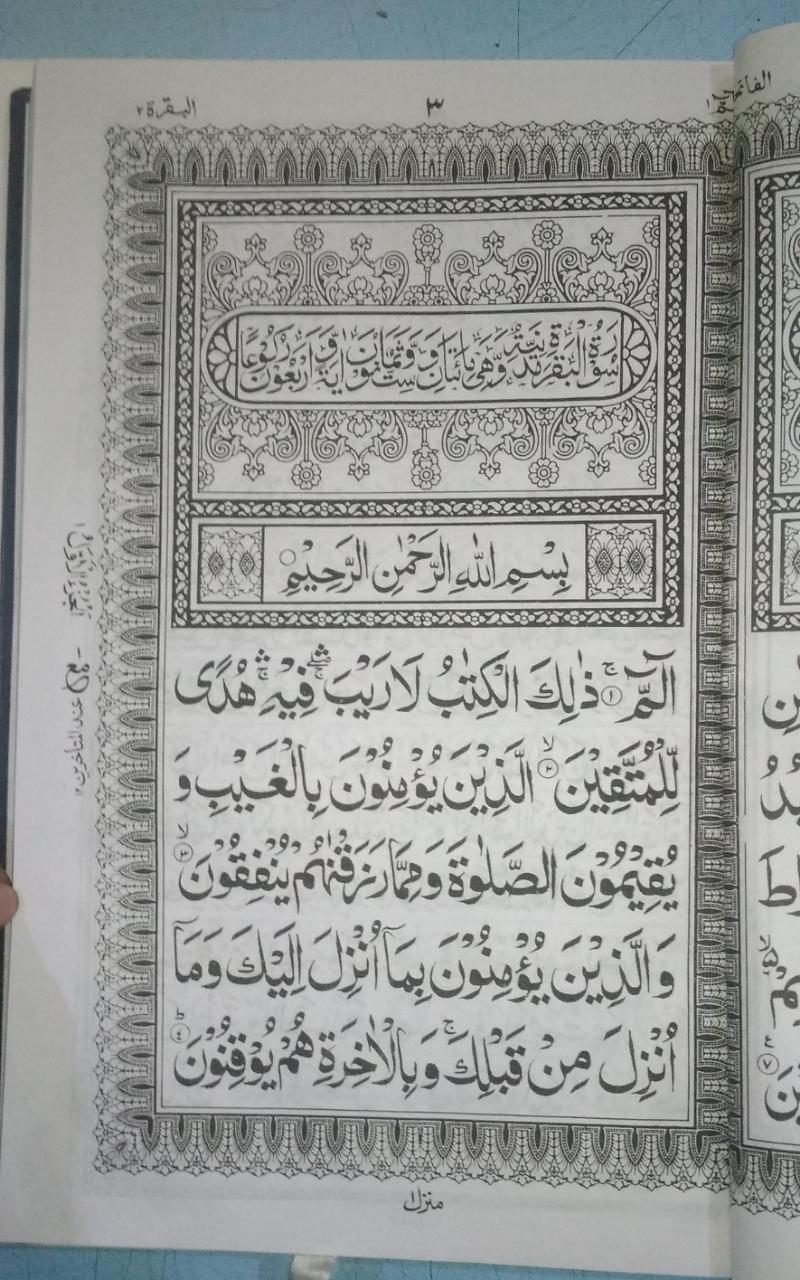 البقرة ٢
٣
الفاتحة ١
سُوْرَةُ الْبَقَرَةِ مَدَنِيَّةٌ وَّهِيَ مِائَتَانِ وَسِتٌّ وَّثَمَانُوْنَ اٰيَةً وَّاَرْبَعُوْنَ رُكُوْعًا
بِسْمِ اللّٰهِ الرَّحْمٰنِ الرَّحِيْمِ
الٓمّٓ ۚ ١ ذٰلِكَ الْكِتٰبُ لَا رَيْبَ ۛ فِيْهِ ۛ هُدًى
لِّلْمُتَّقِيْنَ ۙ ٢ الَّذِيْنَ يُؤْمِنُوْنَ بِالْغَيْبِ وَ
يُقِيْمُوْنَ الصَّلٰوةَ وَمِمَّا رَزَقْنٰهُمْ يُنْفِقُوْنَ ۙ ٣
وَالَّذِيْنَ يُؤْمِنُوْنَ بِمَآ اُنْزِلَ اِلَيْكَ وَمَآ
اُنْزِلَ مِنْ قَبْلِكَ ۚ وَبِالْاٰخِرَةِ هُمْ يُوْقِنُوْنَ ؕ ٤
الجزء الاول ١
عند المتاخرين ١٢
منزل ١